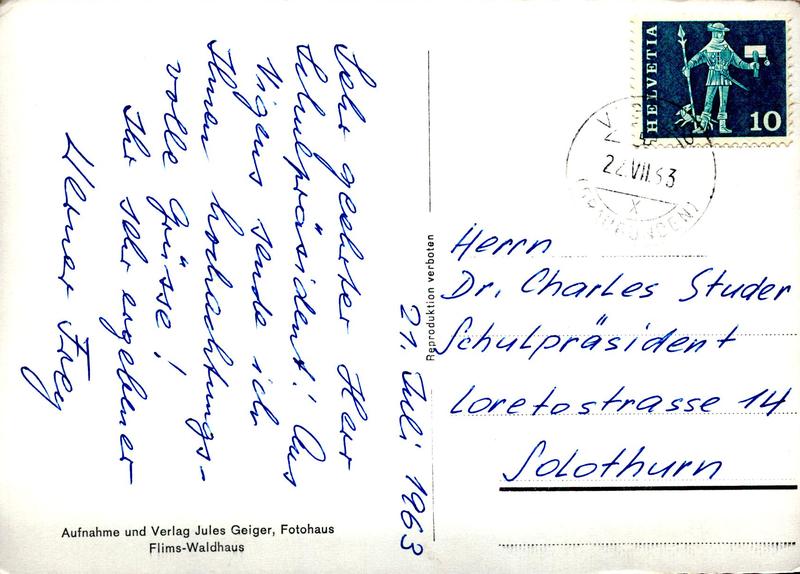 Sehr geehrter Herr
Schulpräsident! Aus
Vigens sende ich
Ihnen hochachtungs-
volle Grüsse!
Ihr sehr ergebener
Werner Frey
21. Juli 1963
Aufnahme und Verlag Jules Geiger, Fotohaus
Flims-Waldhaus
Reproduktion verboten
HELVETIA
10
22.VII.63
X
(GRAUBÜNDEN)
Herrn
Dr. Charles Studer
Schulpräsident
Loretostrasse 14
Solothurn